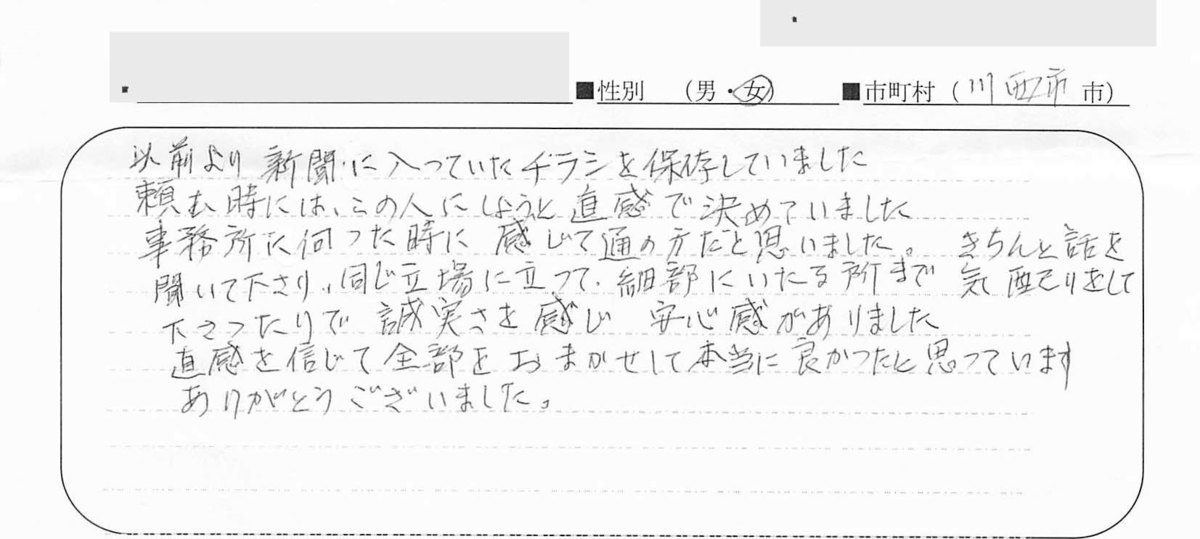 ■性別 （男・女） ■市町村（川西市 市）
以前より新聞に入っていたチラシを保存していました
頼む時には、この人にしようと直感で決めていました
事務所に伺った時に 感じて通の方だと思いました。 きちんと話を
聞いて下さり、同じ立場に立って、細部にいたる所まで 気配りをして
下さったりで 誠実さを感じ 安心感がありました
直感を信じて全部をおまかせして本当に良かったと思っています
ありがとうございました。